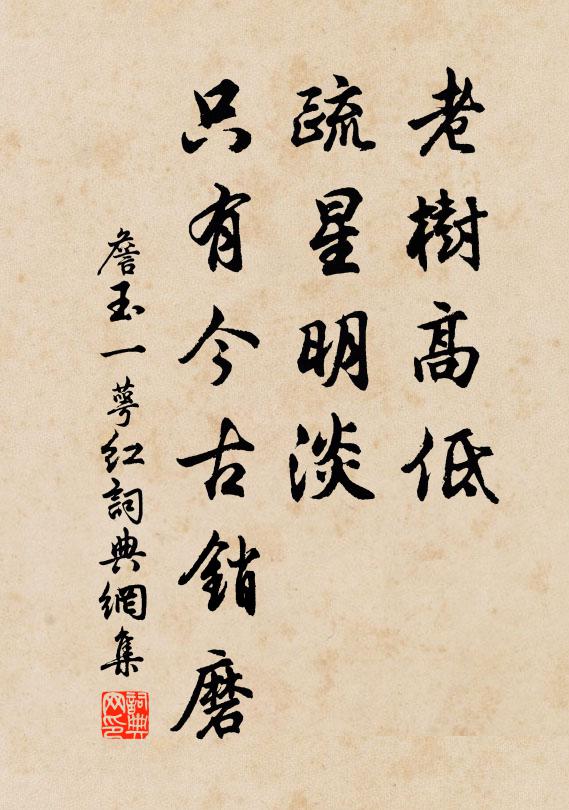 老樹高低
疏星明淡
只有今古銷磨
詹玉一萼紅詞典網集
詞典網印